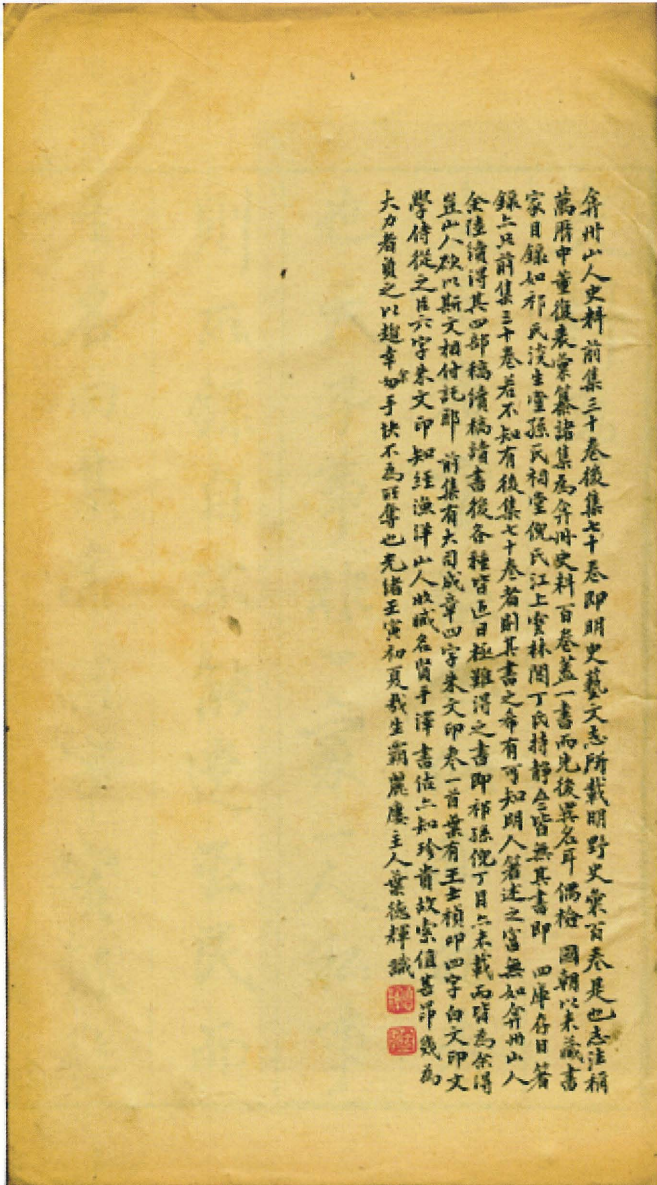 弇州山人史料前集三十卷後集七十卷即明史藝文志所載明野史彙百卷是也志注稱
萬曆中董復表彙纂諸集為弇州史料百卷蓋一書而先後異名耳偶檢 國朝以來藏書
家目錄如祁氏淡生堂孫氏祠堂倪氏江上雲林閣丁氏持靜皆無其書即 四庫存目著
錄亦只前集三十卷若不知有後集七十卷者則其書之希有可知明人著述之富無如弇州山人
余陸續得其四部稿續稿讀書後各種皆近日極難得之書即祁孫倪丁目亦未載而皆為余得
豈山人欲以斯文相付託耶 前集有大司成章四字朱文印卷一首葉有王士禎印四字白文印文
學侍從之臣六字朱文印知經漁洋山人收藏名賢手澤書估亦知珍貴故索值甚昂幾為
大力者負之以趨幸余手快不為所奪也光緒壬寅初夏哉生霸麗廔主人葉德輝識